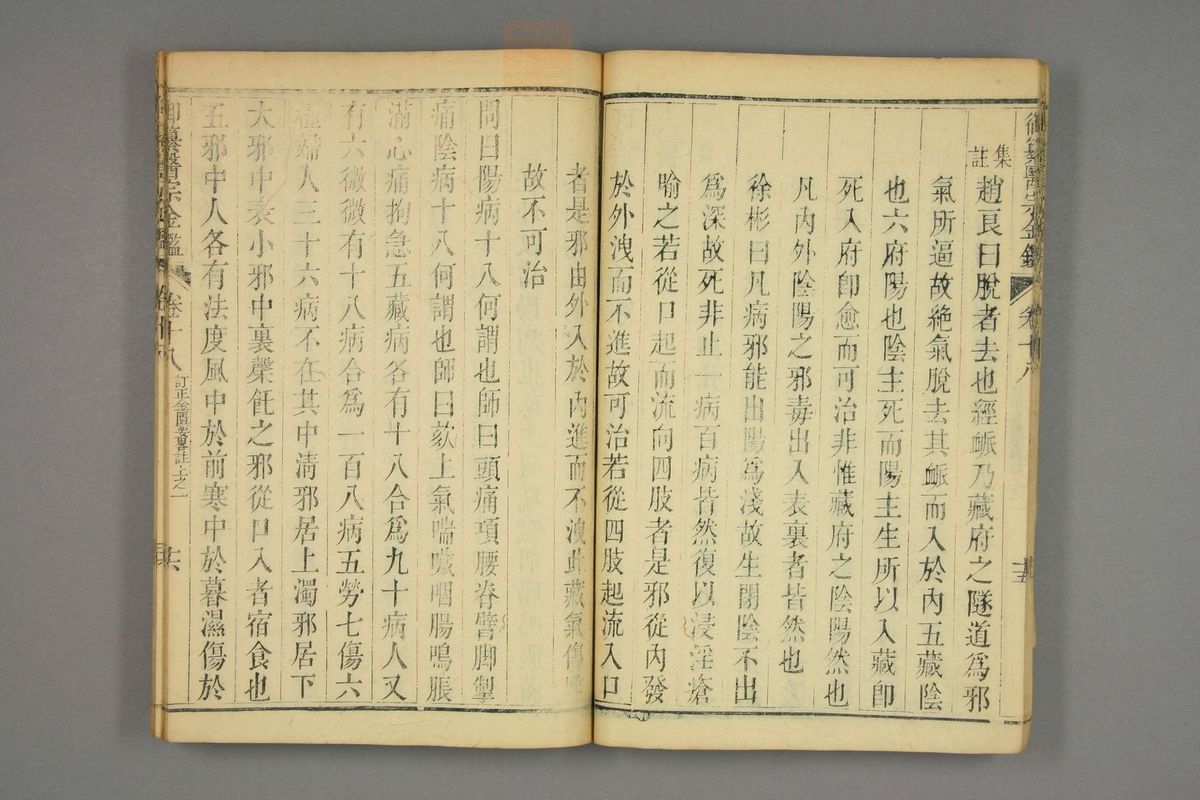 御纂醫宗金鑑
卷十八
十五
集註
趙良曰脫者去也經脈乃藏府之隧道為邪
氣所逼故絶氣脫去其脈而入於內五藏陰
也六府陽也陰主死而陽主生所以入藏卽
死入府卽愈而可治非惟藏府之陰陽然也
凡內外陰陽之邪毒出入表裏者皆然也
徐彬曰凡病邪能出陽爲淺故生閉陰不出
爲深故死非止病百病皆然復以浸淫瘡
喻之若從口起而流向四肢者是邪從內發
於外洩而不進故可治若從四肢起流入口
者是邪由外入於內進而不洩此藏氣傷
故不可治
問曰陽病十八何謂也師曰頭痛項腰脊臂脚掣
痛陰病十八何謂也師曰欬上氣喘噦咽腸鳴脹
滿心痛拘急五藏病各有十八合爲九十病人又
有六微微有十八病合爲一百八病五勞七傷六
極婦人三十六病不在其中淸邪居上濁邪居下
大邪中表小邪中裏䅽飥之邪從口入者宿食也
五邪中人各有法度風中於前寒中於暮濕傷於
御纂醫宗金鑑
卷十八
訂正金匱要畧註上之一
十六